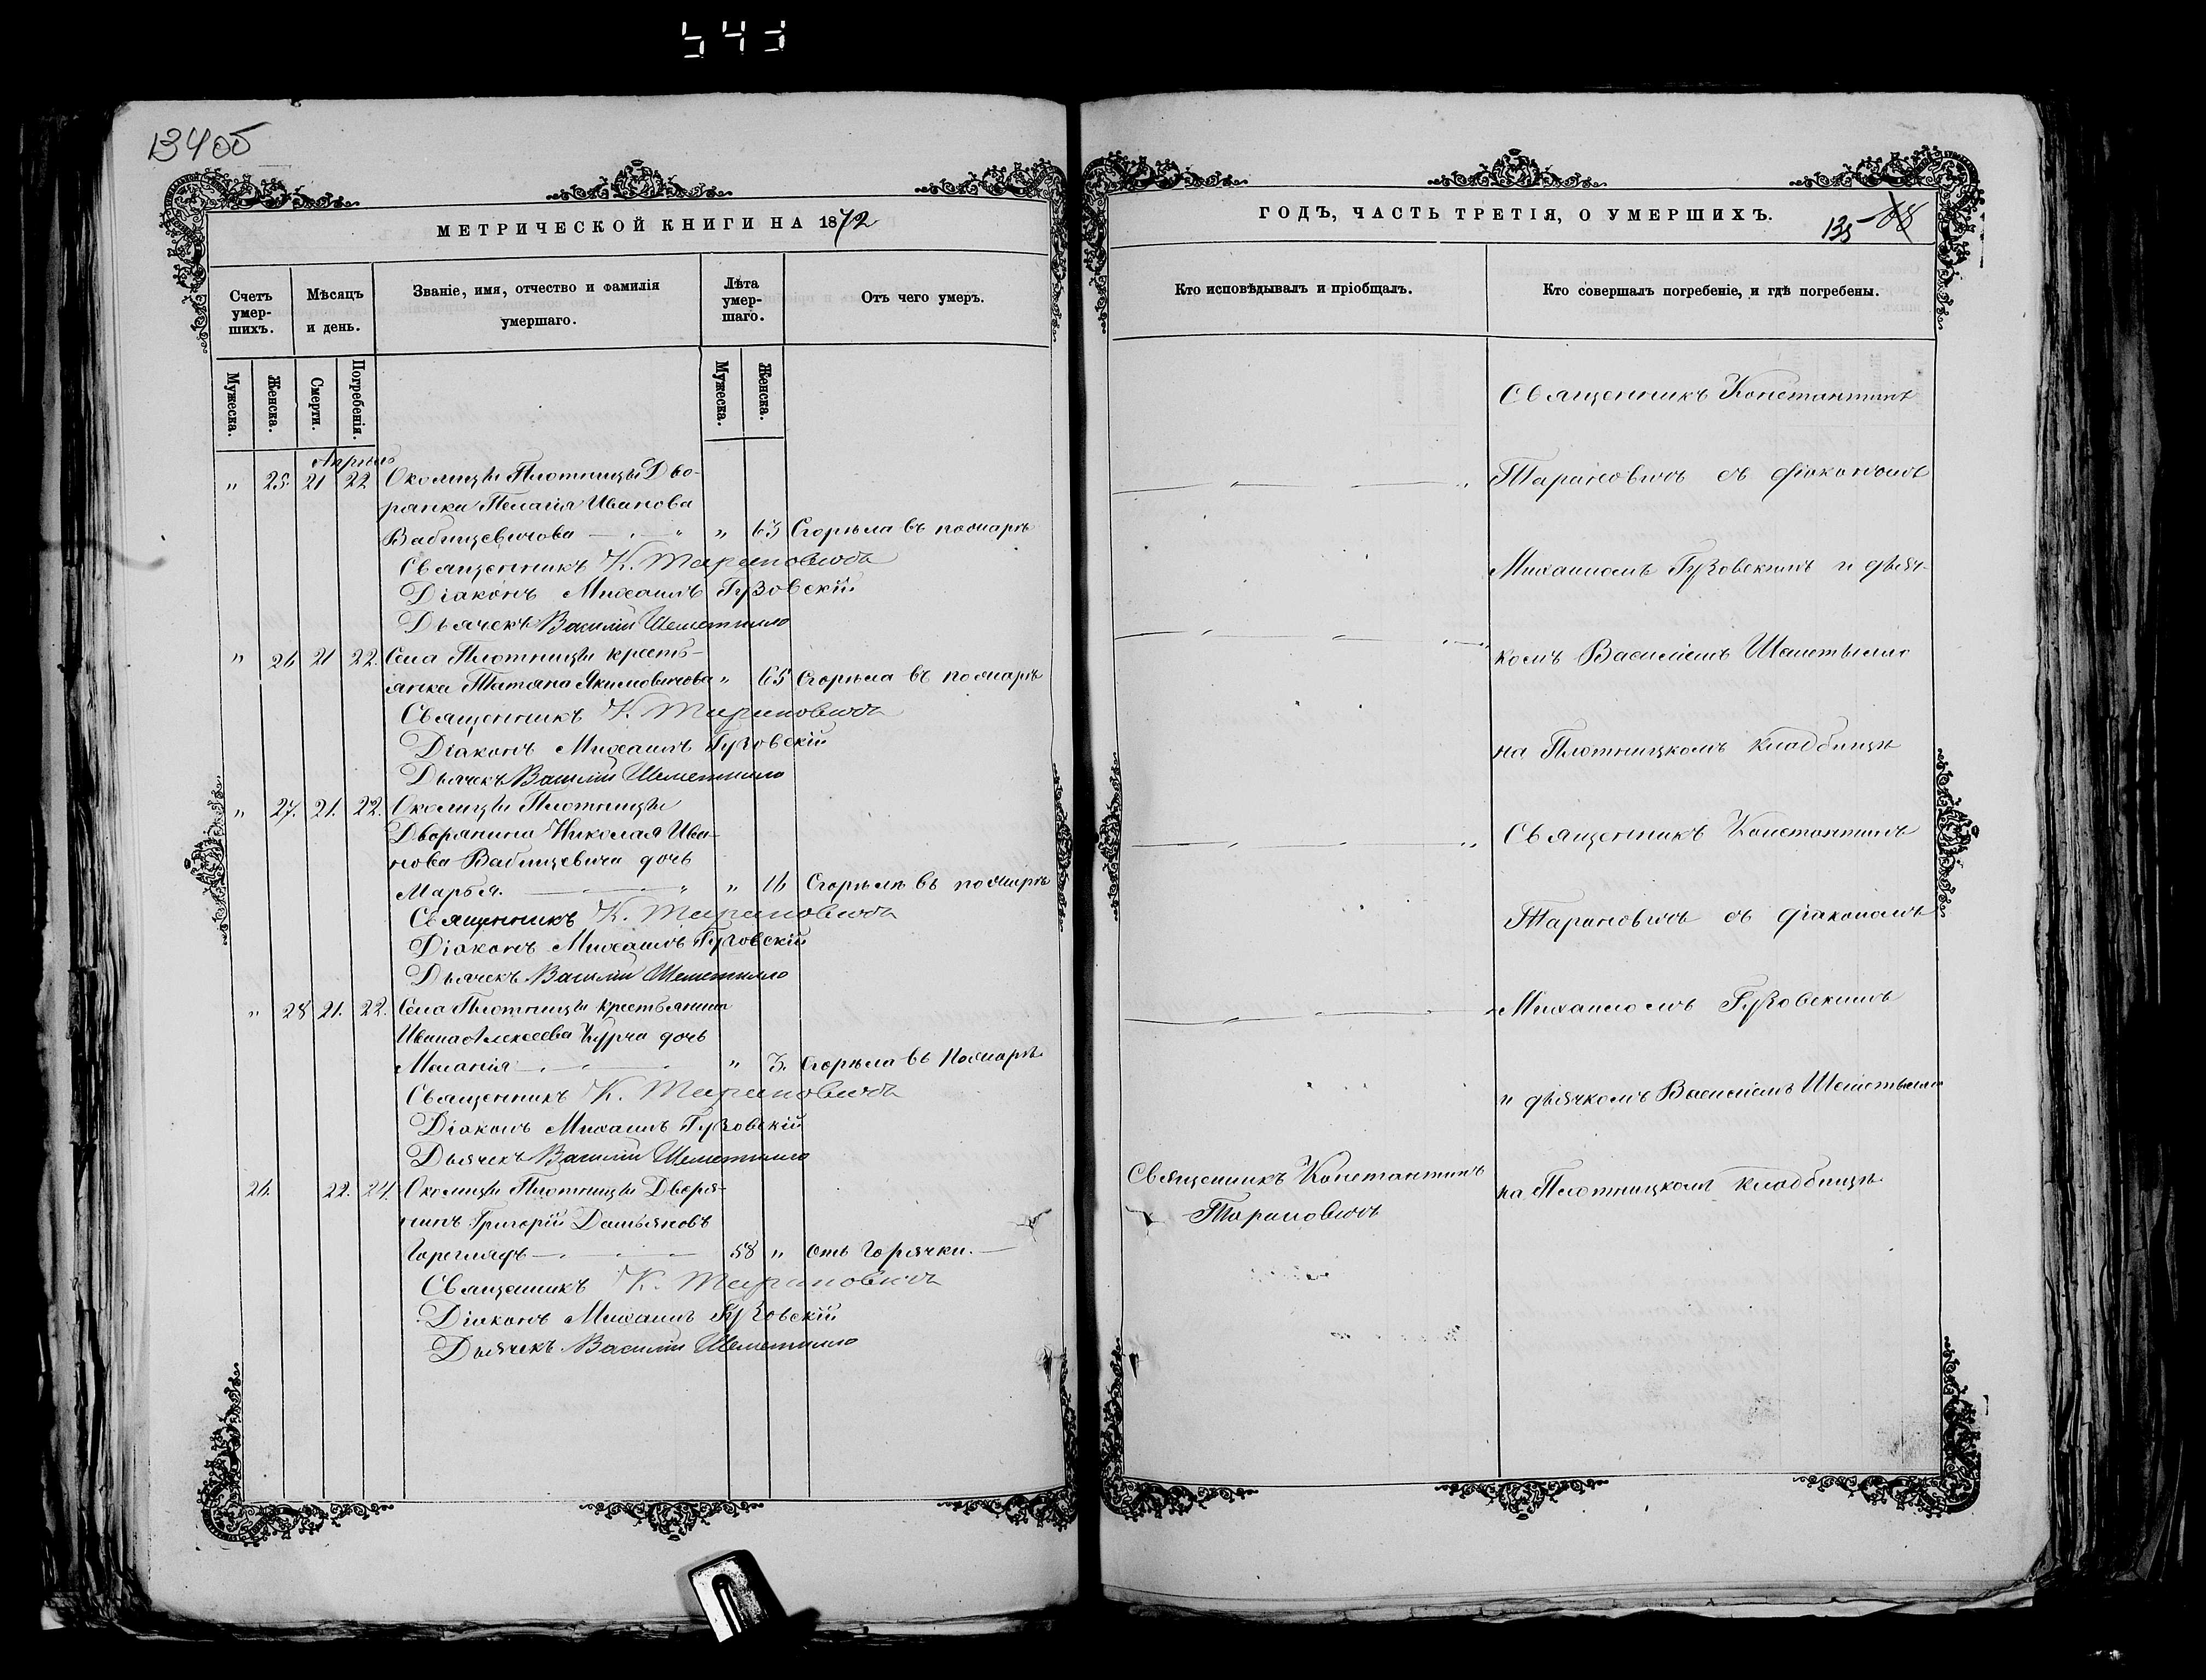 543
134об
МЕТРИЧЕСКОЙ КНИГИ НА 1872
Счетъ умер-шихъ.
Мѣсяцъ и день.
Званіе, имя, отчество и фамилія умершаго.
Лѣта умер-шаго.
Отъ чего умеръ.
Мужеска.
Женска.
Смерти.
Погребенія.
Мужеска.
Женска.
Апрель
" 25. 21 22 Околицы Плотницы Дво-
рянка Пелагія Иванова
Вабищевичова " 63 Сгорѣла въ пожарѣ
Священникъ К. Тарановичъ
Діаконъ Михаилъ Гузовскій
Дьячекъ Василій Шеметилло
" 26 21 22. Села Плотницы кресть-
янка Татіана Якимовичова " 65 Сгорѣла въ пожарѣ
Священникъ К. Тарановичъ
Діаконъ Михаилъ Гузовскій
Дьячекъ Василій Шеметилло
" 27. 21. 22. Околицы Плотницы
Дворянина Николая Ива-
нова Вабищевича дочь
Марья. " 16 Сгорѣла въ пожарѣ
Священникъ К. Тарановичъ
Діаконъ Михаилъ Гузовскій
Дьячекъ Василій Шеметилло
" 28 21. 22. Села Плотницы крестьянина
Ивана Алексеева дочь
Меланія " 3. Сгорѣла въ Пожарѣ
Священникъ К. Тарановичъ
Діаконъ Михаилъ Гузовскій
Дьячекъ Василій Шеметилло
26. 22. 24. Околицы Плотницы Дворя-
нинъ Григорій Демьяновъ
Горегляфъ 58 " Отъ Горячки.
Священникъ К. Тарановичъ
Діаконъ Михаилъ Гузовскій
Дьячекъ Василій Шеметилло
ГОДЪ, ЧАСТЬ ТРЕТІЯ, О УМЕРШИХЪ.
135 68
Кто исповѣдывалъ и пріобщалъ.
Кто совершалъ погребеніе, и гдѣ погребены.
Священникъ Константинъ
Тарановичъ съ діакономъ
Михаиломъ Гузовскимъ и дьяч-
комъ Василіемъ Шеметилло
на Плотницкомъ кладбищѣ
Священникъ Константинъ
Тарановичъ съ діакономъ
Михаиломъ Гузовскимъ
и дьячкомъ Василіемъ Шеметилло
Священникъ Константинъ
Тарановичъ
на Плотницкомъ кладбищѣ.